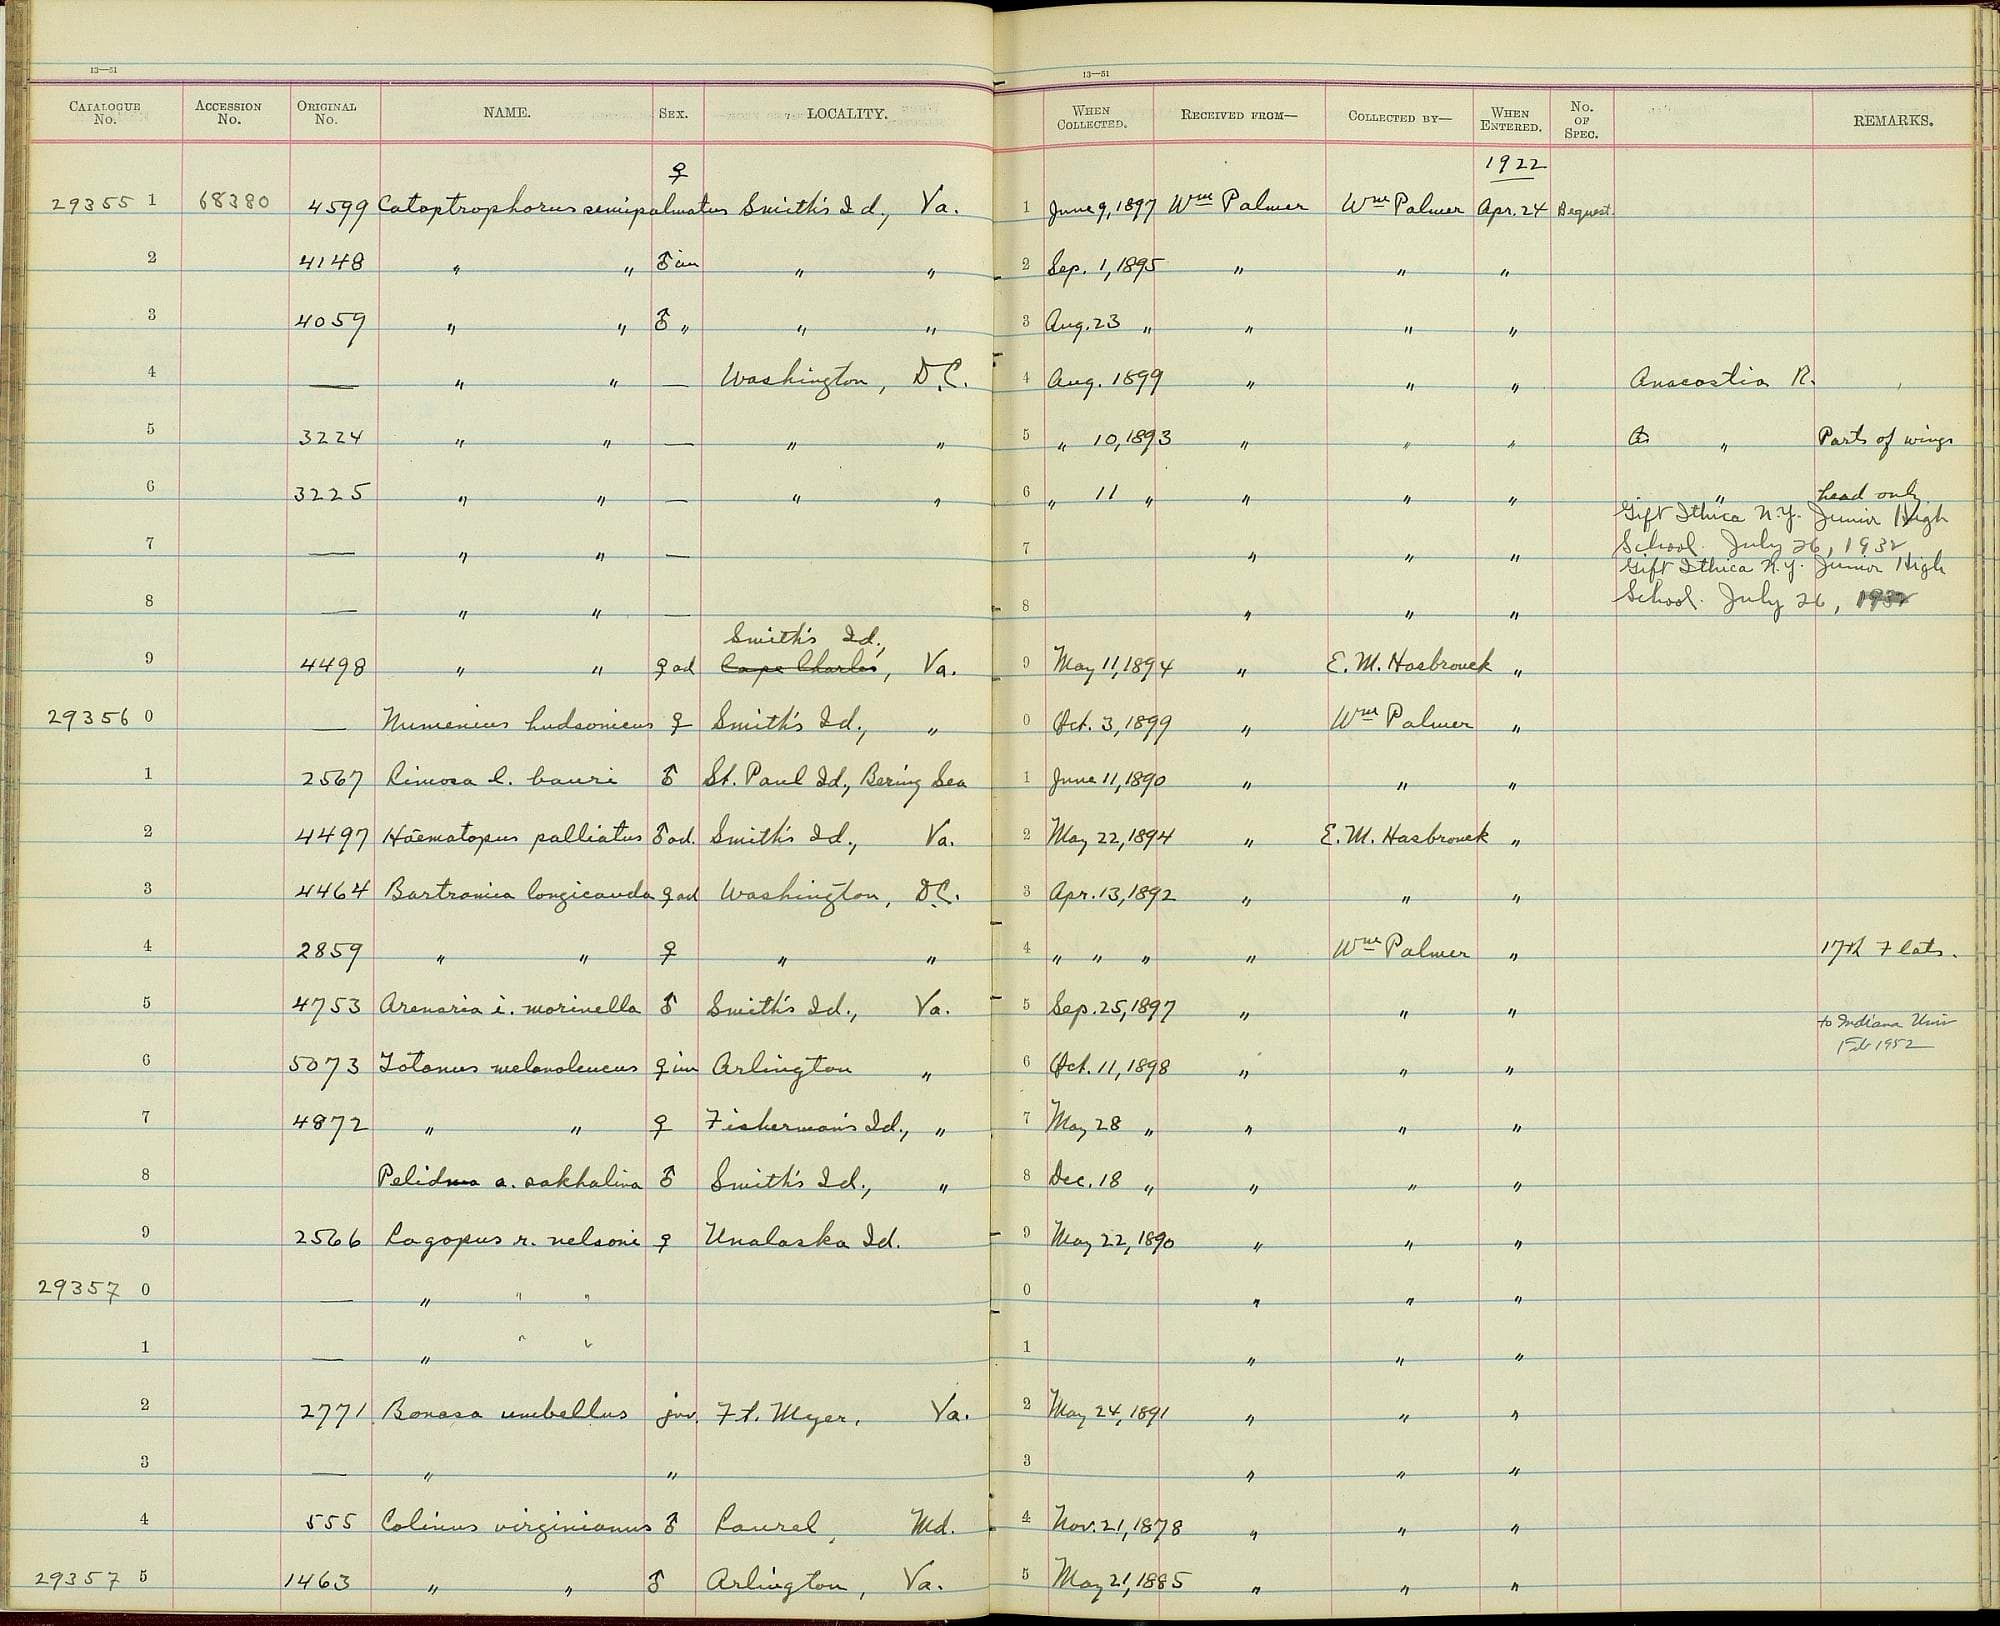 13—51
13—51
CATALOGUE No. ACCESSION No. ORIGINAL No. NAME. SEX. LOCALITY. WHEN COLLECTED. RECEIVED FROM— COLLECTED BY— WHEN ENTERED. No. OF SPEC. REMARKS.
1922
29355 1 68380 4599 Catoptrophorus semipalmatus ♀ Smith's Id., Va. 1 June 9, 1897 Wm Palmer Wm Palmer Apr. 24 Bequest.
2 4148 " " ♂ im " " 2 Sep. 1, 1895 " " "
3 4059 " " ♂ " " " 3 Aug. 23 " " " "
4 — " " — Washington, D.C. 4 Aug. 1899 " " " Anacostia R.
5 3224 " " — " " 5 " 10, 1893 " " " " Parts of wings
6 3225 " " — " " 6 " 11 " " " " " head only
Gift Ithica N.Y. Junior High
7 — " " — 7 " " " School. July 26, 1932
Gift Ithica N.Y. Junior High
8 — " " — 8 " " " School. July 26, 1932
Smith's Id.,
9 4498 " " ♀ ad Cape Charles, Va. 9 May 11, 1894 " E. M. Hasbrouck "
29356 0 — Numenius hudsonicus ♀ Smith's Id., " 0 Oct. 3, 1899 " Wm Palmer "
1 2567 Limosa l. bauri ♂ St. Paul Id., Bering Sea 1 June 11, 1890 " " "
2 4497 Haematopus palliatus ♂ ad. Smith's Id., Va. 2 May 22, 1894 " E. M. Hasbrouck "
3 4464 Bartramia longicauda ♀ ad Washington, D.C. 3 Apr. 13, 1892 " " "
4 2859 " " ♀ " " 4 " " " " Wm Palmer " 17th Flats.
5 4753 Arenaria i. morinella ♂ Smith's Id., Va. 5 Sep. 25, 1897 " " "
to Indiana Univ
Feb 1952
6 5073 Totanus melanoleucus ♀ im Arlington " 6 Oct. 11, 1898 " " "
7 4872 " " ♀ Fisherman's Id., " 7 May 28 " " " "
8 Pelidna a. sakhalina ♂ Smith's Id., " 8 Dec. 18 " " " "
9 2566 Lagopus r. nelsoni ♀ Unalaska Id. 9 May 22, 1890 " " "
29357 0 — " " " 0 " " "
1 — " " " 1 " " "
2 2771 Bonasa umbellus juv. Ft. Myer, Va. 2 May 24, 1891 " " "
3 — " " 3 " " "
4 555 Colinus virginianus ♂ Laurel, Md. 4 Nov. 21, 1878 " " "
29357 5 1463 " " ♂ Arlington, Va. 5 May 21, 1885 " " "